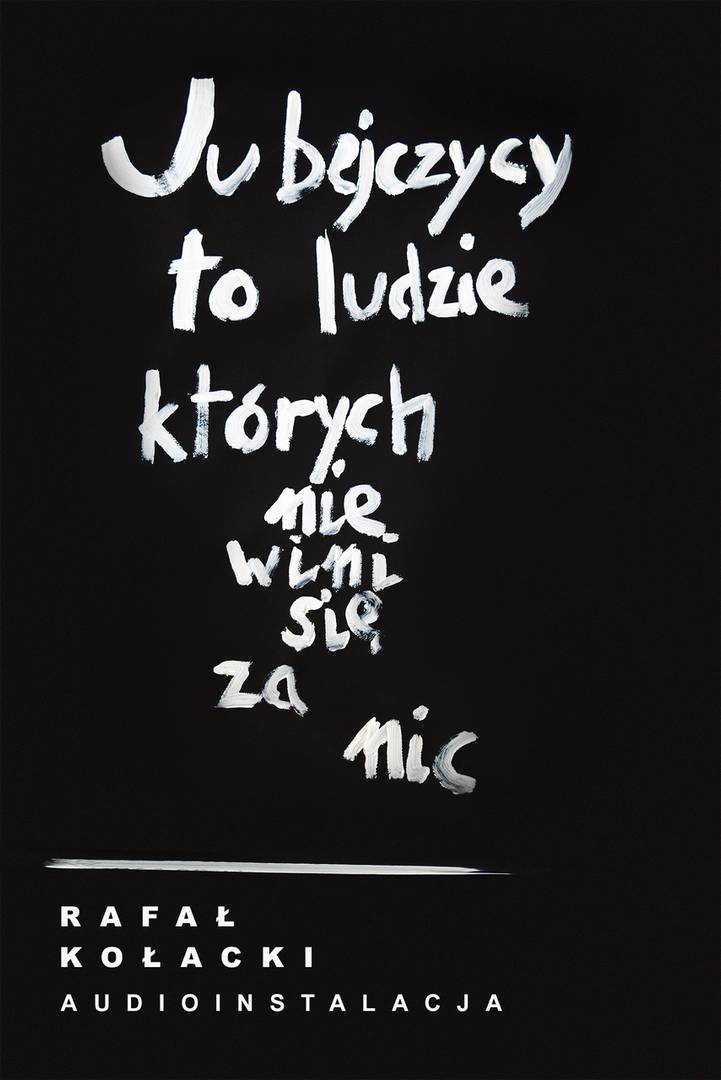 Jubejczycy
to ludzie
których
nie
wini
się
za
nic
RAFAŁ
KOŁACKI
AUDIOINSTALACJA